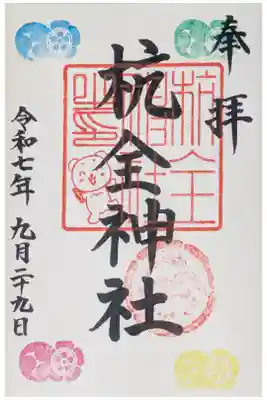 奉拝
杭全神社
令和七年 九月二十九日